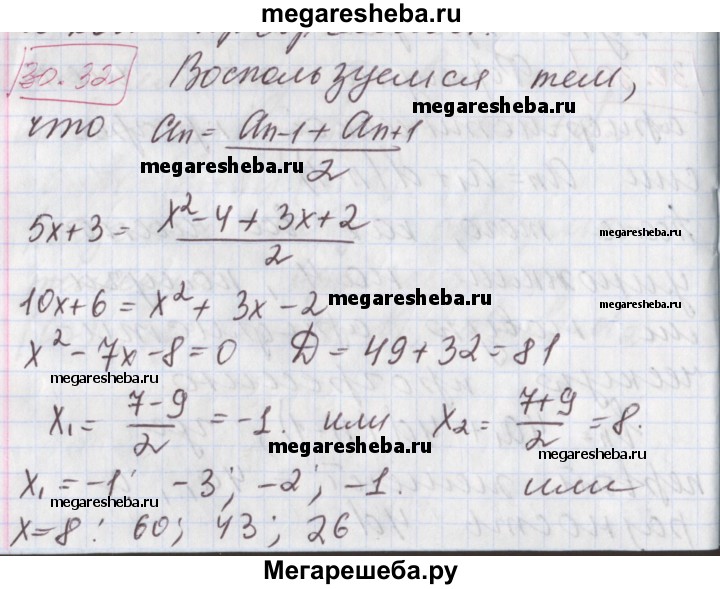 megaresheba.ru
30.32
Воспользуемся тем,
megaresheba.ru
что an = (an-1 + an+1)/2
megaresheba.ru
5x+3 = (x² - 4 + 3x + 2)/2
megaresheba.ru
10x+6 = x² + 3x - 2
megaresheba.ru
megaresheba.ru
x² - 7x - 8 = 0 D = 49 + 32 = 81
megaresheba.ru
x₁ = (7-9)/2 = -1. или x₂ = (7+9)/2 = 8.
megaresheba.ru
megaresheba.ru
x₁ = -1: -3; -2; -1. или
megaresheba.ru
megaresheba.ru
x=8: 60; 43; 26
Мегарешеба.ру